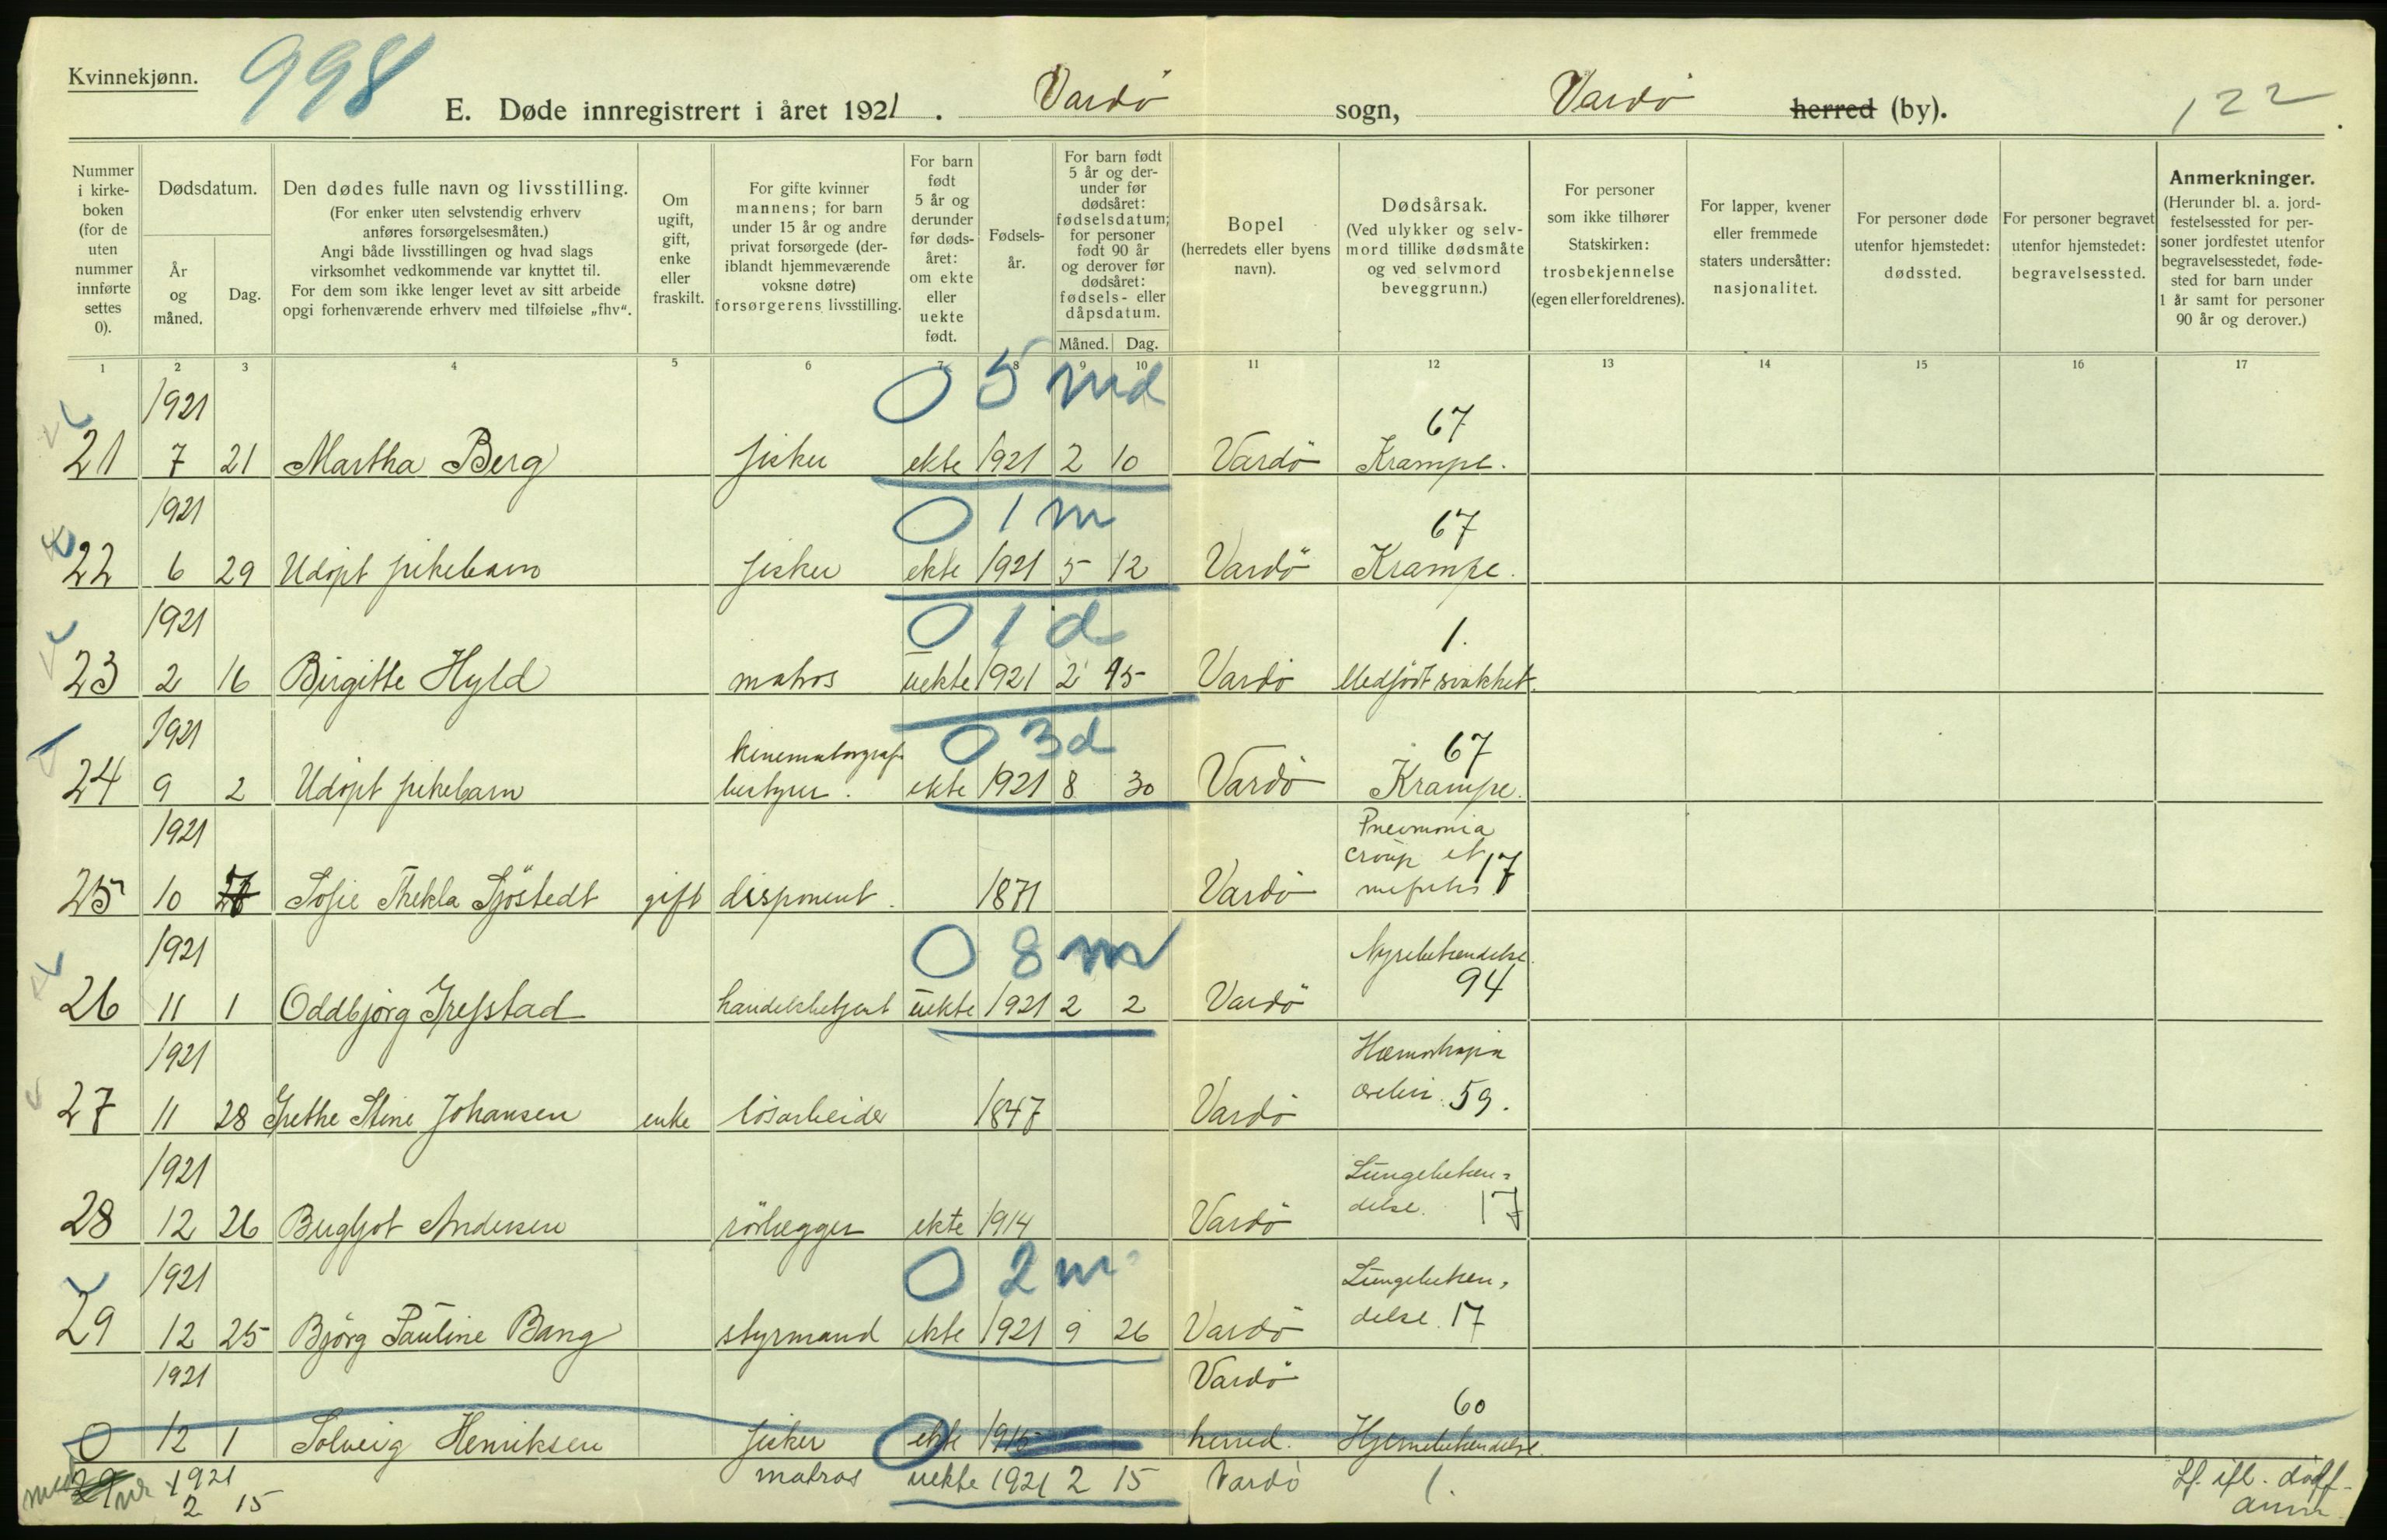 Kvinnekjønn.
998
E. Døde innregistrert i året 1921. Vardö sogn, Vardö herred (by).
122
Nummer i kirke-boken (for de uten nummer innførte settes 0).
Dødsdatum.
År og måned.
Dag.
Den dødes fulle navn og livsstilling.
(For enker uten selvstendig erhverv
anføres forsørgelsesmåten.)
Angi både livsstillingen og hvad slags
virksomhet vedkommende var knyttet til.
For dem som ikke lenger levet av sitt arbeide
opgi forhenværende erhverv med tilføielse „fhv“.
Om ugift, gift, enke eller fraskilt.
For gifte kvinner
mannens; for barn
under 15 år og andre
privat forsørgede (der-
iblandt hjemmeværende
voksne døtre)
forsørgerens livsstilling.
For barn født 5 år og derunder før døds-året: om ekte eller uekte født.
Fødsels-år.
For barn født
5 år og der-
under før
dødsåret:
fødselsdatum;
for personer
født 90 år
og derover før
dødsåret:
fødsels- eller
dåpsdatum.
Måned. Dag.
Bopel
(herredets eller byens
navn).
Dødsårsak.
(Ved ulykker og selv-
mord tillike dødsmåte
og ved selvmord
beveggrunn.)
For personer
som ikke tilhører
Statskirken:
trosbekjennelse
(egen eller foreldrenes).
For lapper, kvener
eller fremmede
staters undersåtter:
nasjonalitet.
For personer døde
utenfor hjemstedet:
dødssted.
For personer begravet
utenfor hjemstedet:
begravelsessted.
Anmerkninger.
(Herunder bl. a. jord-
festelsessted for per-
soner jordfestet utenfor
begravelsesstedet, føde-
sted for barn under
1 år samt for personer
90 år og derover.)
1 2 3 4 5 6 7 8 9 10 11 12 13 14 15 16 17
1921 0 5 md 67
21 7 21 Martha Berg fisker ekte 1921 2 10 Vardö Krampe.
1921 0 1 m 67
22 6 29 Udöpt pikebarn fisker ekte 1921 5 12 Vardö Krampe.
1921 0 1 d 1.
23 2 16 Birgitte Hyld matros uekte 1921 2 15 Vardö Medfödt svakhet.
1921 kinematograf- 0 3 d 67
24 9 2 Udöpt pikebarn bestyrer. ekte 1921 8 30 Vardö Krampe.
1921 Pneumonia
croup et 17
25 10 Sofie Thekla Sjöstedt gift disponent. 1871 Vardö
1921 0 8 m Nyrebetændelse.
94
26 11 1 Oddbjörg Grefstad handelsbetjent uekte 1921 2 2 Vardö
1921
59.
27 11 28 Grethe Stine Johansen enke lösarbeider 1847 Vardö
1921 Lungebetæn-
delse. 17
28 12 26 Bergljot Andersen rörlegger ekte 1914 Vardö
1921 0 2 m Lungebetæn-
delse. 17
29 12 25 Björg Pauline Bang styrmand ekte 1921 9 26 Vardö
1921 Vardö 60
0 12 1 Solveig Henriksen fisker ekte 1915 herred. Hjernebetændelse.
1921 matros uekte 1921 2 15 Vardö 1.
2 15